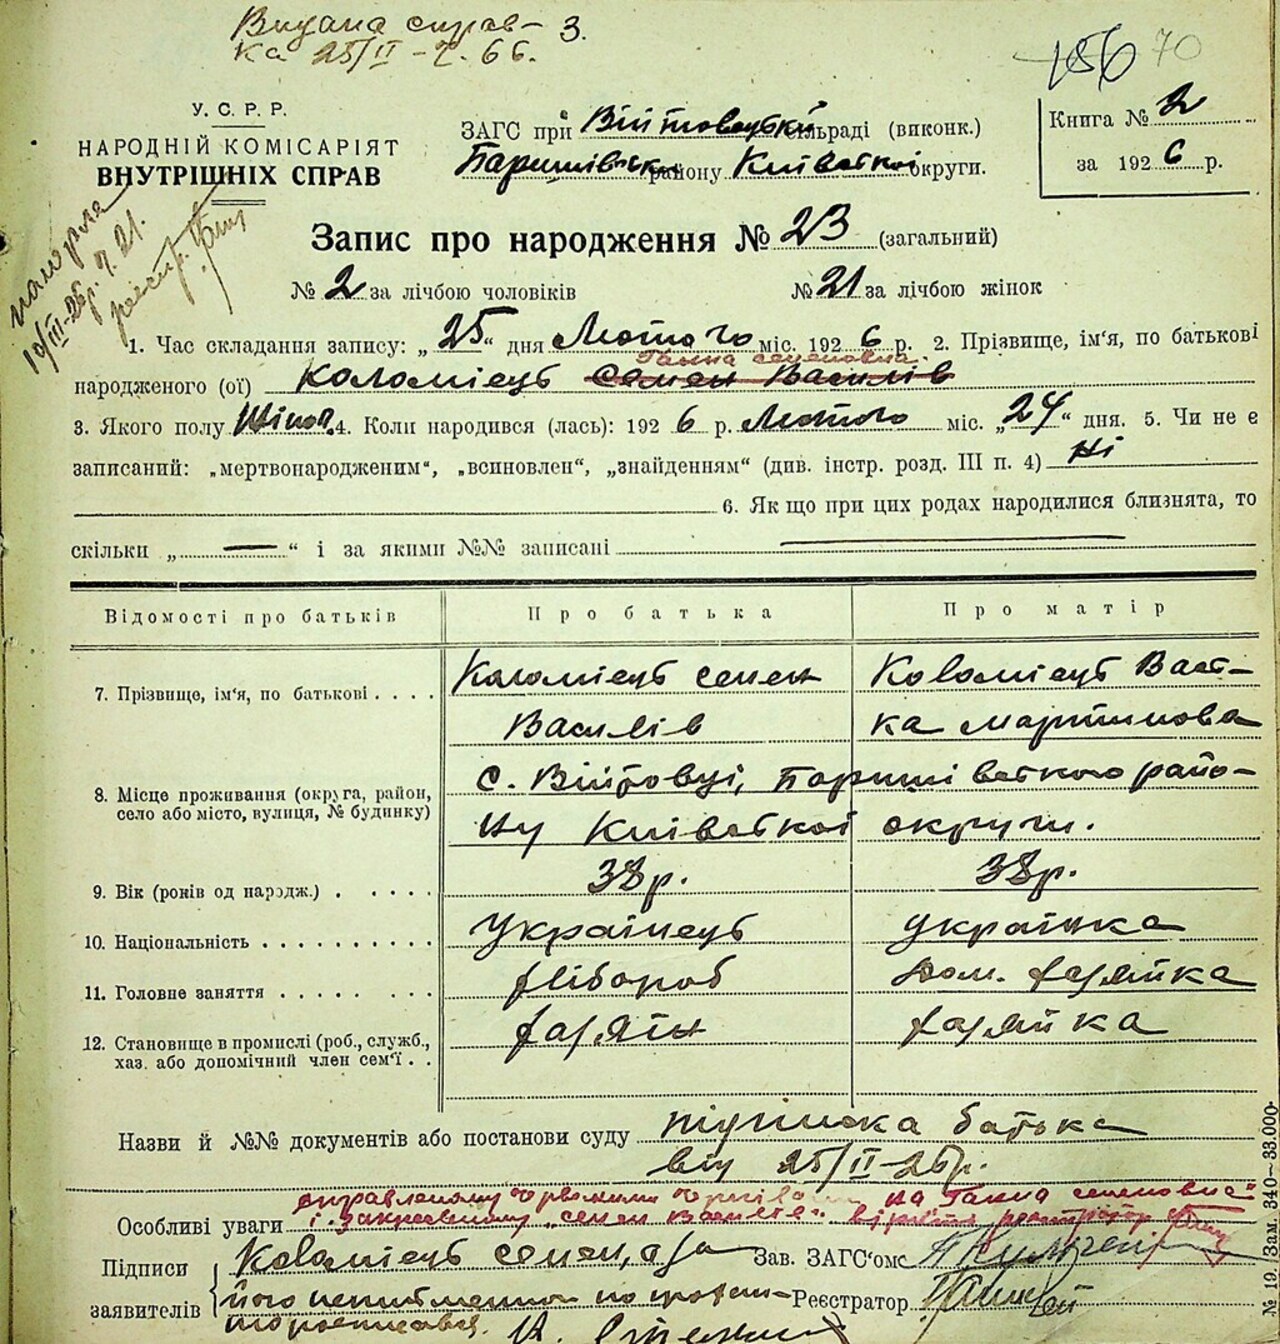 Видана справ- 3.
ка 25/II - 2. 66.
156 70
У. С. Р. Р.
НАРОДНІЙ КОМІСАРІЯТ
ВНУТРІШНІХ СПРАВ
ЗАГС при Війтовецькій сільраді (виконк.)
Баришівськ району Київської округи.
Книга № 2
за 1926 р.
померла
10/III-26р. ч. 21.
реєстр.
Запис про народження № 23 (загальний)
№ 2 за лічбою чоловіків № 21 за лічбою жінок
1. Час складання запису: „25“ дня Лютого міс. 1926 р. 2. Прізвище, ім'я, по батькові
Ганна семеновна.
народженого (ої) Коломієць Семен Василів
3. Якого полу Жіноч. 4. Коли народився (лась): 1926 р. Лютого міс. „24“ дня. 5. Чи не є
записаний: „мертвонародженим“, „всиновлен“, „знайденням“ (див. інстр. розд. III п. 4) Ні
6. Як що при цих родах народилися близнята, то
скільки „ — “ і за якими №№ записані —
Відомості про батьків Про батька Про матір
7. Прізвище, ім'я, по батькові . . . . Коломієць семен Коломієць Васт-
Василів ка мартинова
8. Місце проживання (округа, район, село або місто, вулиця, № будинку) с. Війтовці, Баришівського райо-
ну Київської округи.
9. Вік (років од народж.) . . . . . 38р. 38р.
10. Національність . . . . . . . . . . Українець українка
11. Головне заняття . . . . . . . . хлібороб дом. хазяйка
12. Становище в промислі (роб., служб., хаз. або допомічний член сем'ї . . хазяїн хазяйка
Назви й №№ документів або постанови суду підписка батька
від 25/II-26р.
Особливі уваги виправленому червоними чернилами на Ганна семеновна"
і закресленому „семен Василів" вірити реєстратор
Підписи заявителів Коломієць семен, а за
його неписьменого по
розписався.
Зав. ЗАГС'омс
Реєстратор
№ 19. Зам. 340—33.000.